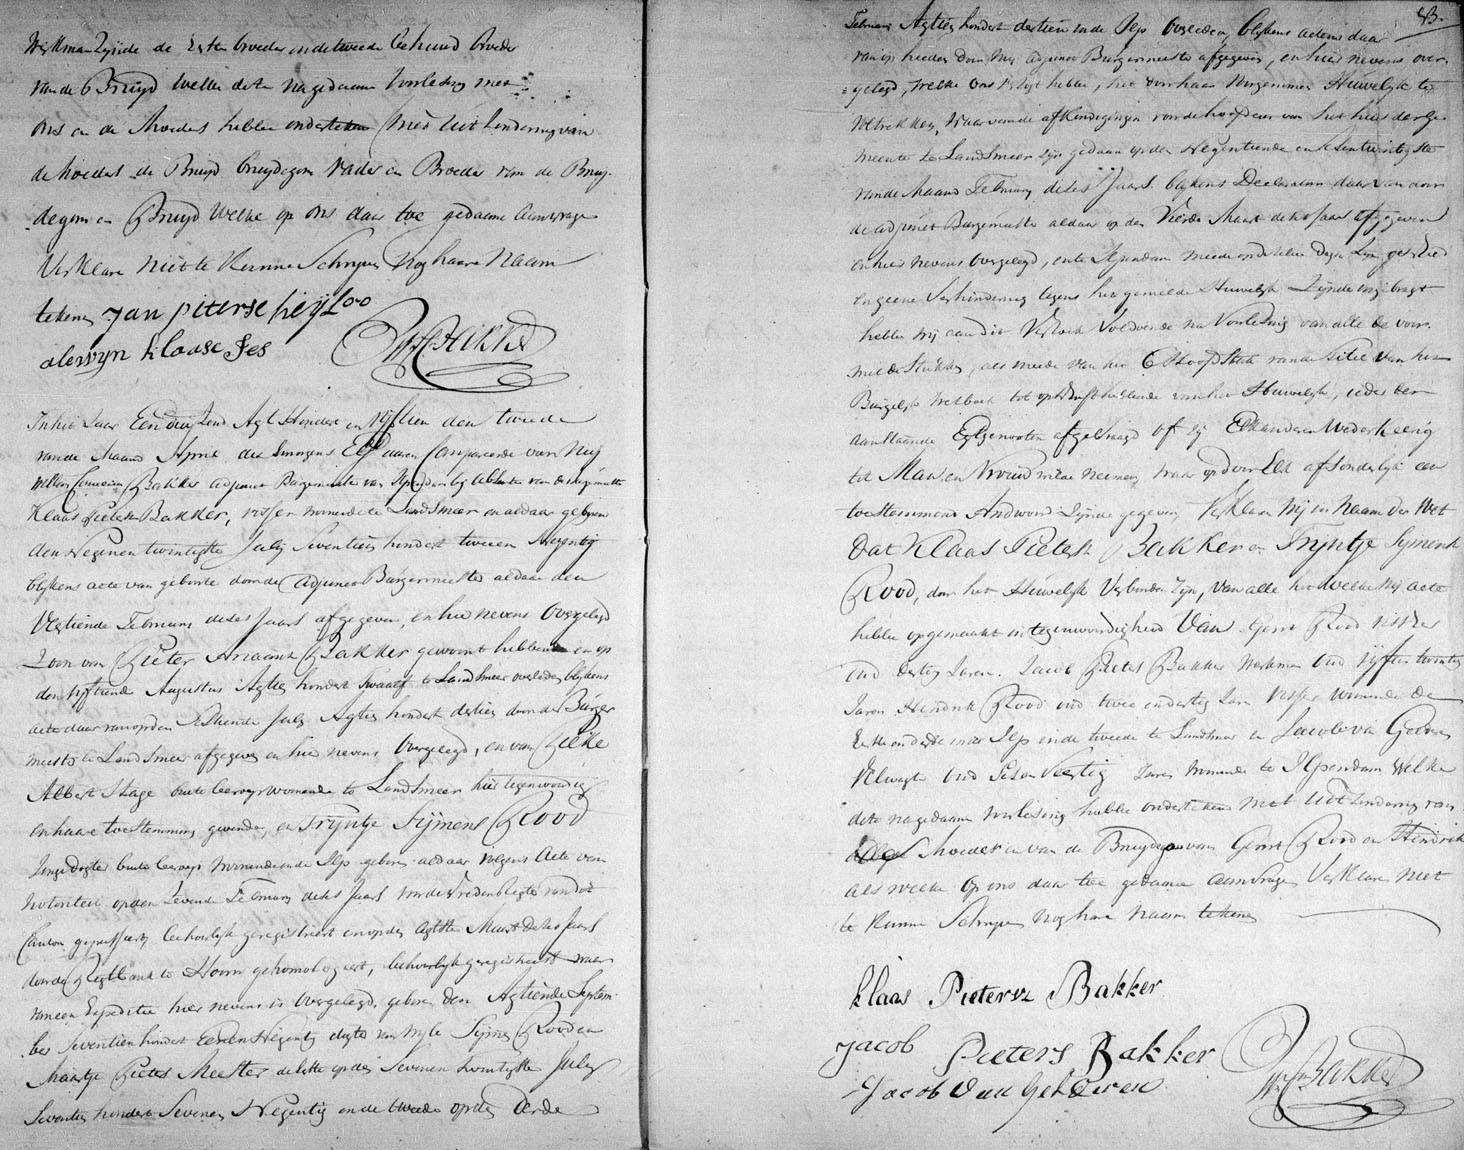 Werkman zijnde de Eerste broeder en de tweede behuwd broeder
van de Bruijd welke deze na gedaane voorlezing met
ons en de Moeders hebben ondertekend met uitzondering van
de Moeders de Bruijd bruijdegom vader en Broeder van de Bruij-
degom en Bruijd welke op ons daar toe gedaane aanvrage
Verklaren niet te kunnen Schryven nog haare Naam
tekenen Jan pieterse heijloo
alewyn klaase Ses
Wm Cn BAKKER
In het Jaar Eenduizend Agt Honderd en Vyftien den tweede
van de Maand April des smorgens Elf uuren Compareerde voor Mij
Willem Cornelisz Bakker adjunct Burgemeester van Ilpendam bij absentie van de Burgemeester
Klaas Pietersz Bakker, visser wonende te Landsmeer en aldaar geboren
den Negenentwintigste July Seventien honderd twee en Negentig
blykens acte van geboorte door de Adjunct Burgemeester aldaar den
Veertiende February dezes Jaars afgegeven, en hier nevens Overgelegd
Zoon van Pieter Ariaansz Bakker gewoond hebbende en op
den vyftiende Augustus Agtien honderd twaalf te Landsmeer overleden blykens
acte daar van op den Sestiende July Agtien honderd dertien door de Burge
meester te Landsmeer afgegeven en hier nevens Overgelegd, en van
Albert Stage buite beroep wonende te Landsmeer hier tegenwoordig
en haare toestemming gevende, en Tryntje Sijmens Rood
Jonge Dogter buite beroep wonende onder Ilp geboren aldaar volgens Acte van
Notoriteit op den Zevende February dezes Jaars voor de Vredenregter van dit
Canton gepasseerd, behoorlyk geregistreerd en op den Agtste Maart dezes Jaars
door de Regtbank te Hoorn gehomologeerd, behoorlyk geregistreerd waar
van een Expeditie hier nevens is Overgelegd, geboren den Agtiende Septem-
ber Seventien honderd Een en Negentig dogter van wyle Symen Rood en
Maartje Pieters Meester de Eerste op den Sevenen twintigste July
Seventien honderd Seven en Negentig en de tweede op den Derde
83.
February Agtien honderd dertien in de Ilp Overleden, blykens actens daar
van op heeden door Mij adjunct Burgemeester afgegeven, en hier nevens over
gelegd, welke ons verzogt hebben, tot voorhaar voorgenomen Huwelyk te
voltrekken, waar van de afkondigingen voor de hoofddeur van het huis der Ge-
meente te Landsmeer zyn gedaan op den Negentiende en Sesentwintigste
van de Maand February dezes Jaars blykens Declaratien daar van door
de adjunct Burgemeester aldaar op den Vierde Maart dezes Jaars afgegeven
en hier nevens Overgelegd, en te Ilpendam meede op dezelve Dagen zyn geschied
en geene Verhindering tegens het gemelde Huwelyk Zynde ingebragt
hebben wij aan dit Verzoek Voldoende na Voorlezing van alle de voor-
melde Stukken, als meede van het 6 Hoofdstuk van de Titel van het
Burgelyk Wetboek tot opschrift hebbende van het Huwelyk, ieder der
aanstaande Egtgenooten afgevraagd of zij Elkanderen Wederkeerig
tot Man en Vrouw wilde neemen, waar op door Elk afsonderlyk een
toestemmend Andwoord Zynde gegeven Verklaren Wij in Naam der Wet
Dat Klaas Pietersz Bakker en Tryntje Symensz
Rood, door het Huwelyk Verbonden Zyn, van alle het welke wij acte
hebben opgemaakt in tegenwoordigheid Van Gerrit Rood visser
oud dertig Jaren. Jacob Pieters Bakker Werkman Oud vijfentwintig
Jaren Hendrik Rood oud twee en dertig Jaren Visser wonende de
Eerste en derde in de Ilp en de tweede te Landsmeer en Jacob van Gelderen
Veldwagter Oud Ses en Veertig Jaren wonende te Ilpendam Welke
deze na gedaane voorlezing hebben ondertekend met Uitzondering van
de Moeder en van de Bruijdegom Gerrit Rood en Hendrik
als welke Op ons daar toe gedaane aanvrage Verklaren Niet
te kunnen Schryven nog hare Naam tekenen
klaas Pietersz Bakker
Jacob Pieters Bakker
Jacob Van Gelderen
Wm Cn BAKKER